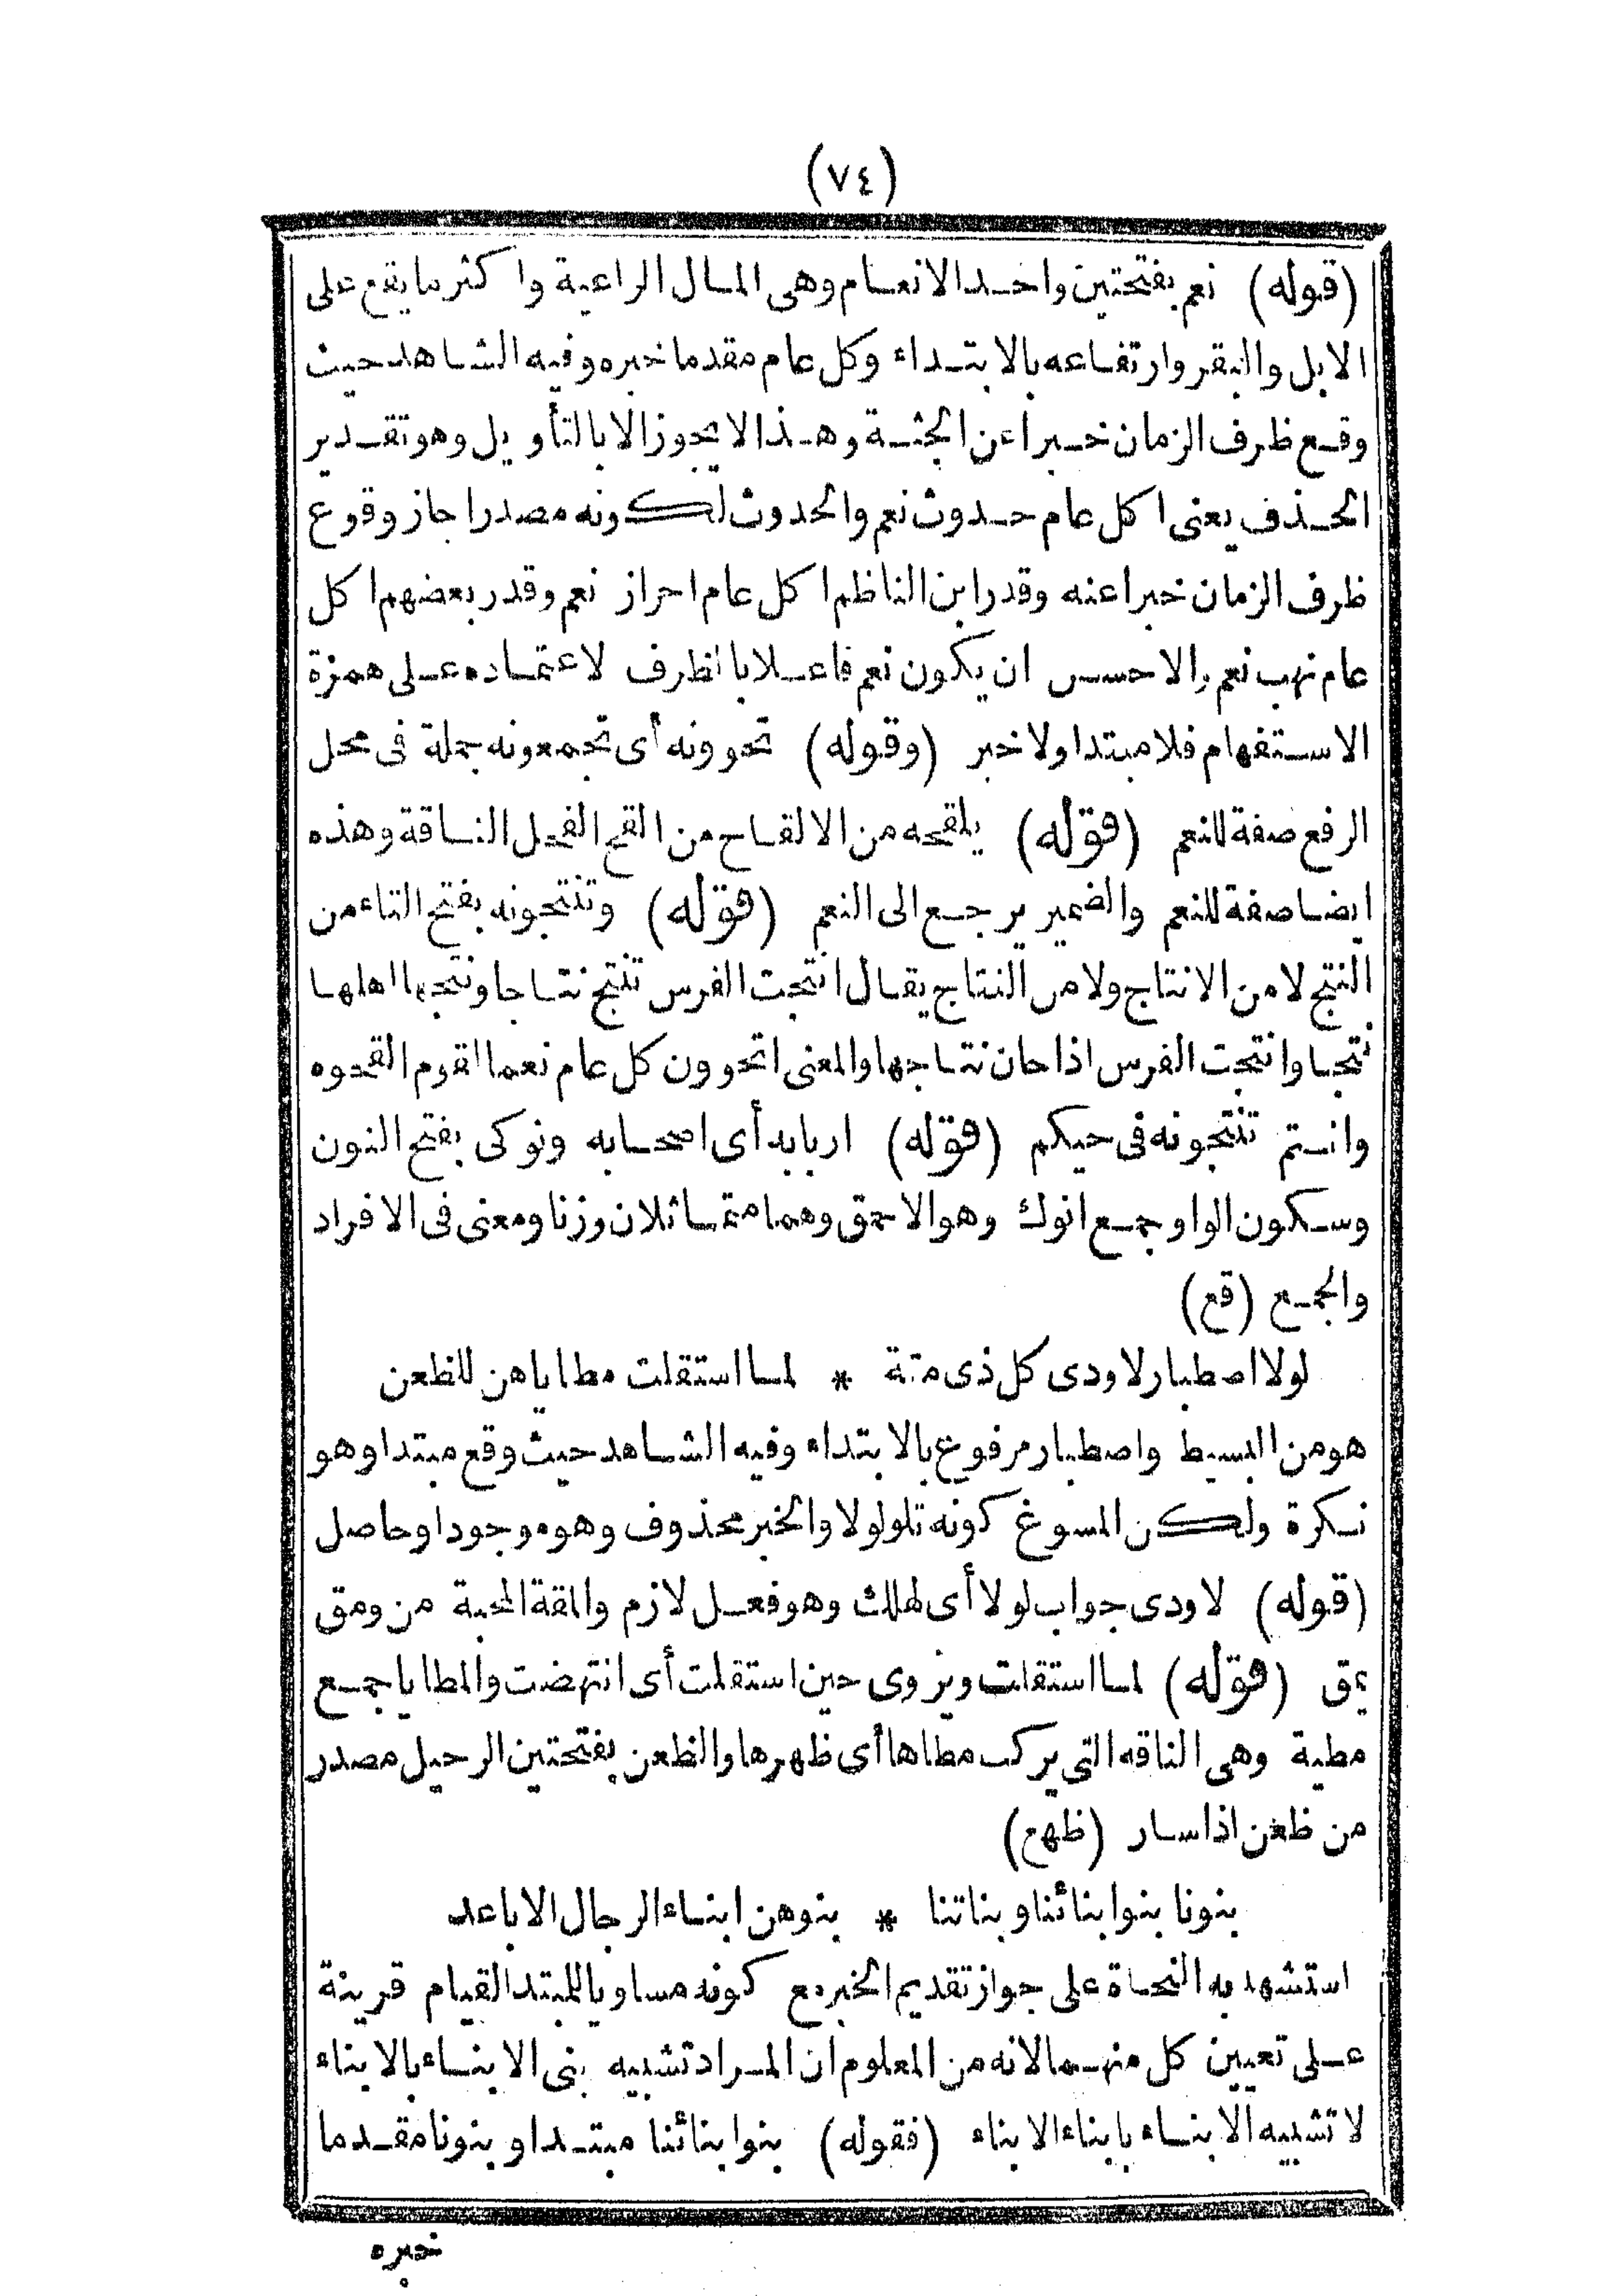 (٧٤)
(قوله) نعم بفتحتين واحد الانعام وهى المال الراعية واكثر ما يقع على
الابل والبقر وارتفاعه بالابتداء وكل عام مقدما خبره وفيه الشاهد حيث
وقع ظرف الزمان خبرا عن الجثة وهذا لا يجوز الا بالتأويل وهو تقدير
الحذف يعنى اكل عام حدوث نعم والحدوث لكونه مصدرا جاز وقوع
ظرف الزمان خبرا عنه وقدر ابن الناظم اكل عام احراز نعم وقدر بعضهم اكل
عام نهب نعم والاحسن ان يكون نعم فاعلا بالظرف لاعتماده على همزة
الاستفهام فلا مبتدا ولا خبر (وقوله) تحوونه أى تجمعونه جملة فى محل
الرفع صفة للنعم (قوله) يلقحه من الالقاح من القح الفحل الناقة وهذه
ايضا صفة للنعم والضمير يرجع الى النعم (قوله) وتنتجونه بفتح التاء من
النتج لا من الانتاج ولا من النتاج يقال انتجت الفرس تنتج نتاجا ونتجها اهلها
نتجا وانتجت الفرس اذا حان نتاجها والمعنى اتحوون كل عام نعما القوم القحوه
وانتم تنتجونه فى حيكم (قوله) اربابه أى اصحابه ونوكى بفتح النون
وسكون الواو جمع انوك وهو الاحمق وهما متماثلان وزنا ومعنى فى الافراد
والجمع (قع)
لولا اصطبار لاودى كل ذى مقة * لما استقلت مطاياهن للظعن
هو من البسيط واصطبار مرفوع بالابتداء وفيه الشاهد حيث وقع مبتدا وهو
نكرة ولكن المسوغ كونه تلو لولا والخبر محذوف وهو موجود او حاصل
(قوله) لاودى جواب لولا أى لهلك وهو فعل لازم والمقة المحبة من ومق
يمق (قوله) لما استقلت ويروى حين استقلت أى انتهضت والمطايا جمع
مطية وهى الناقه التى يركب مطاها أى ظهرها والظعن بفتحتين الرحيل مصدر
من ظعن اذا سار (ظهع)
بنونا بنوا بنائنا وبناتنا * بنوهن ابناء الرجال الاباعد
استشهد به النحاة على جواز تقديم الخبر مع كونه مساويا للمبتدا لقيام قرينة
على تعيين كل منهما لانه من المعلوم ان المراد تشبيه بنى الابناء بالابناء
لا تشبيه الابناء بابناء الابناء (فقوله) بنوا بنائنا مبتدا وبنونا مقدما
خبره